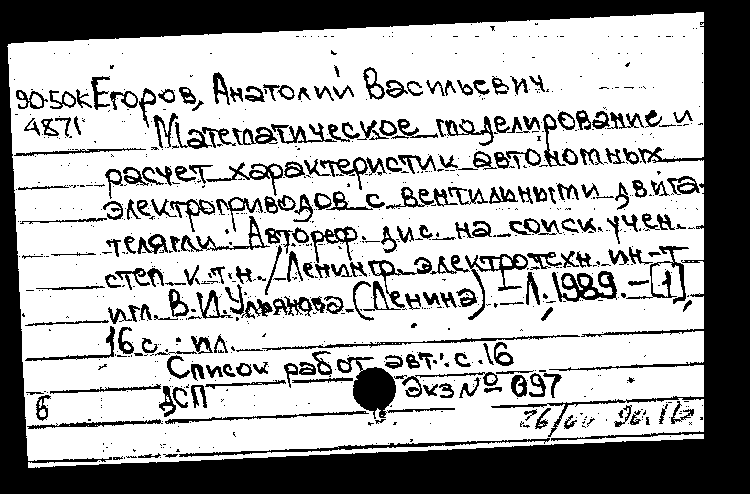 90-50к Егоров, Анатолий Васильевич
4871 Математическое моделирование и
расчет характеристик автономных
электроприводов с вентильными двига-
телями: Автореф. дис. на соиск. учен.
степ. к.т.н./Ленингр. электротехн. ин-т
им. В.И. Ульянова (Ленина). - Л., 1989. - [1],
16 с.: ил.
Список работ авт.: с. 16
ДСП Экз № 097
6